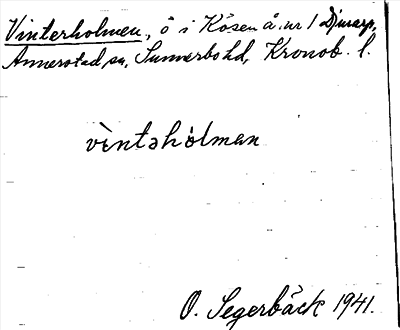 Vinterholmen, ö i Kösen å. nr 1 Djurarp,
Annerstad, sn, Sunnerbo hd, Kronob. l.
vèntəhòlmən
O. Segerbäck 1941.